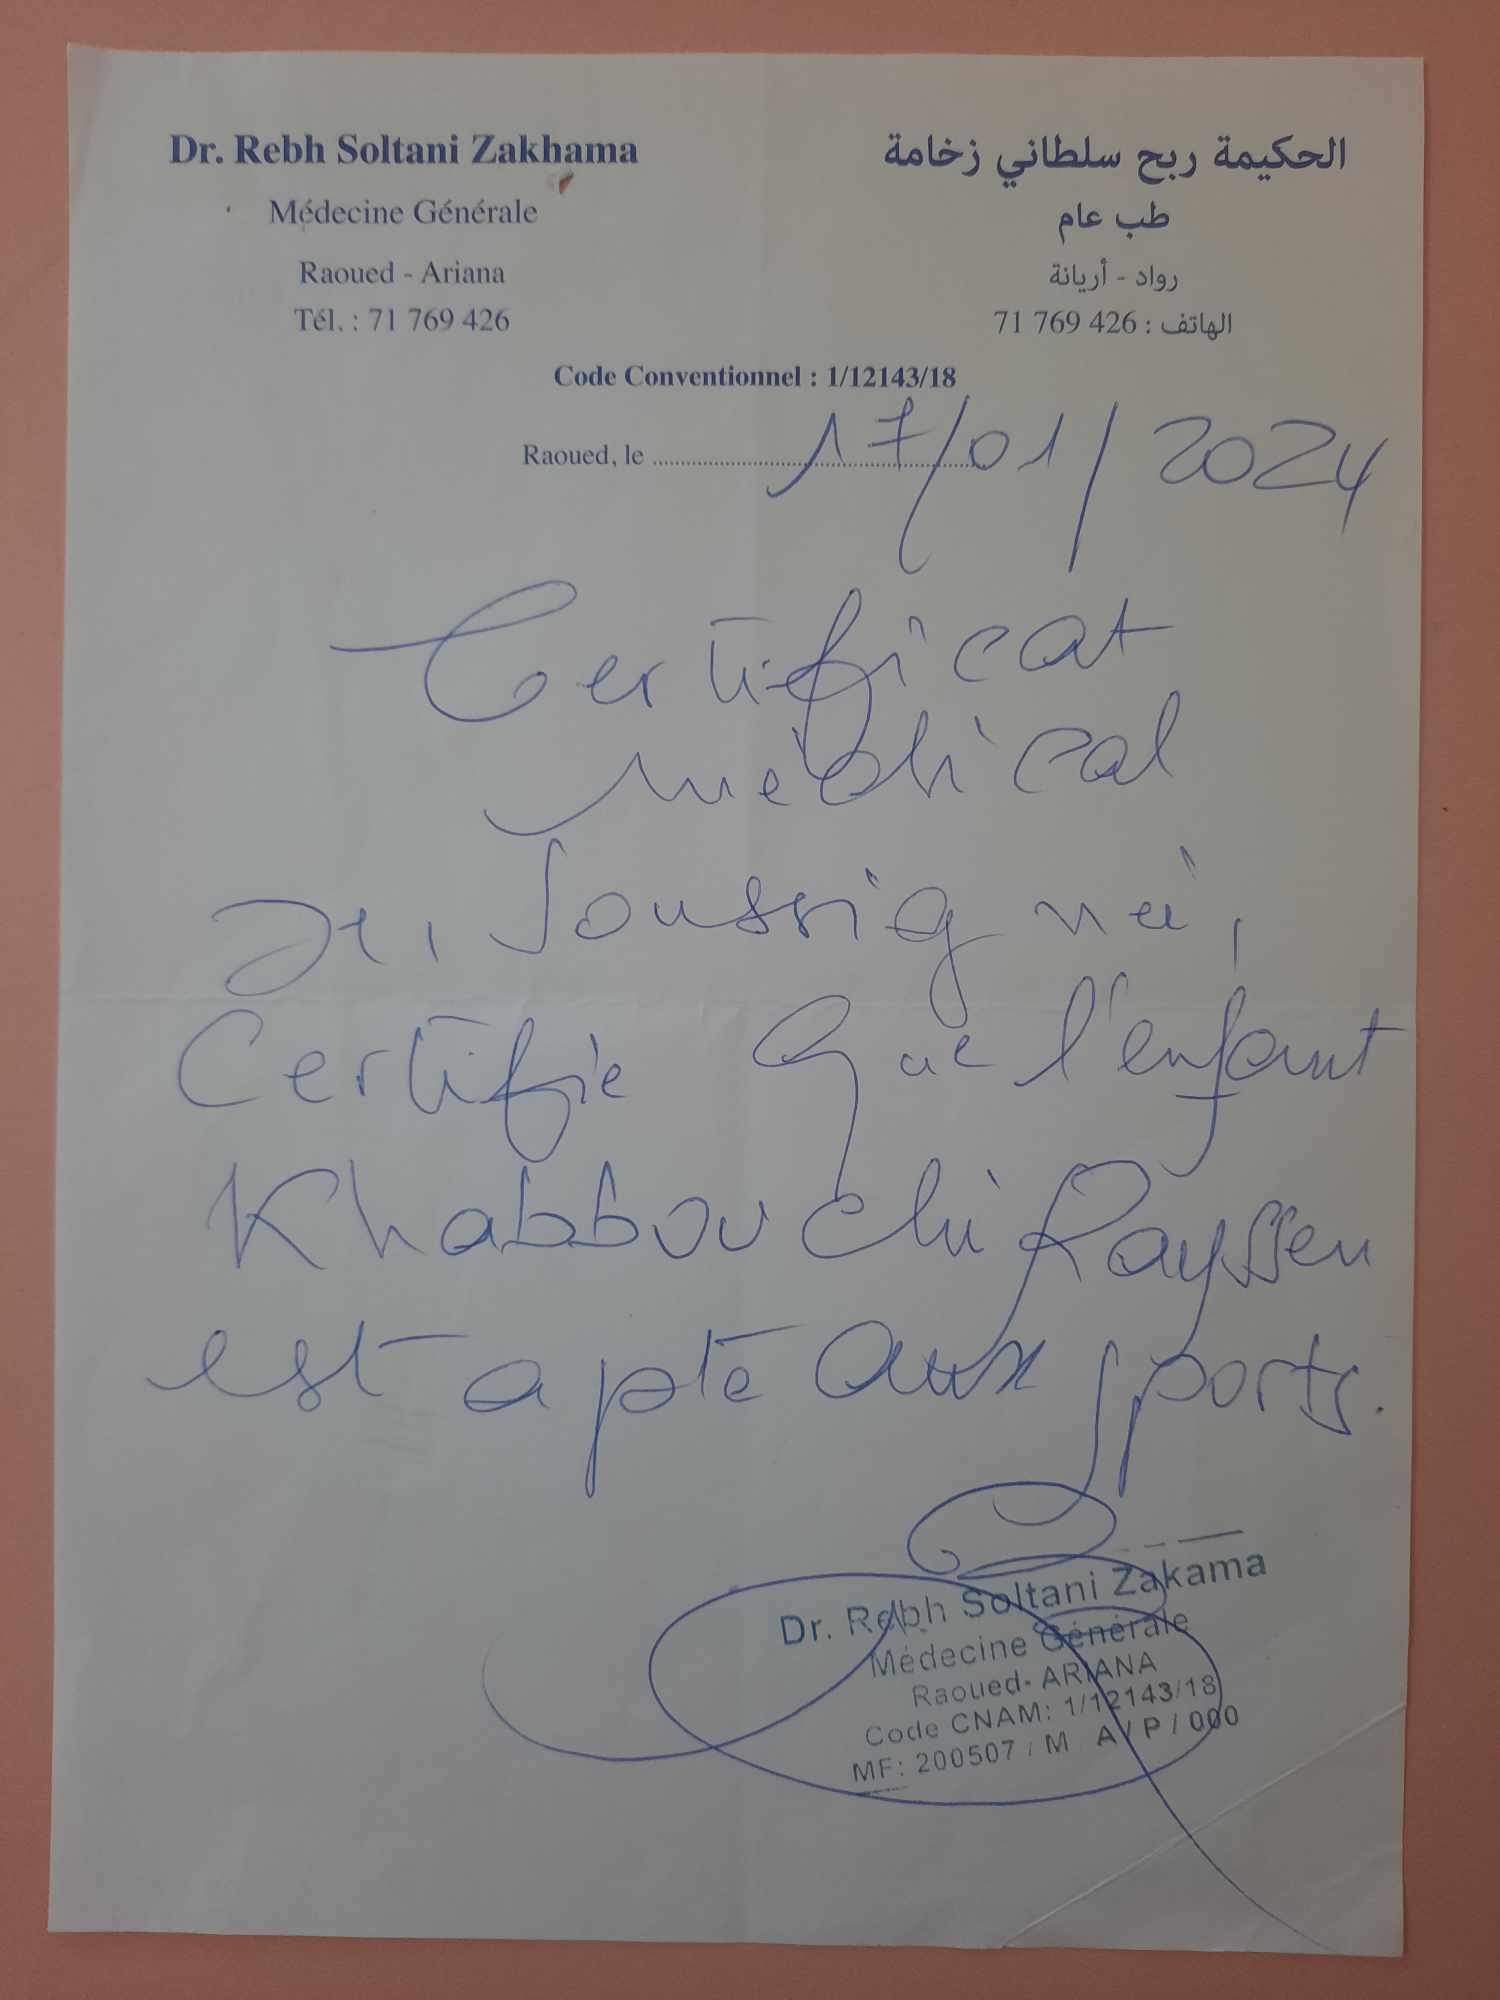 Dr. Rebh Soltani Zakhama
Médecine Générale
Raoued - Ariana
Tél. : 71 769 426
الحكيمة ربح سلطاني زخامة
طب عام
رواد - أريانة
الهاتف : 426 769 71
Code Conventionnel : 1/12143/18
Raoued, le 17/01/2024
Certificat
médical
Je, soussigné,
Certifie que l'enfant
Khabbouchi Rayssen
est apte aux sports.
Dr. Rebh Soltani Zakama
Médecine Générale
Raoued- ARIANA
Code CNAM: 1/12143/18
MF: 200507 / M A / P / 000